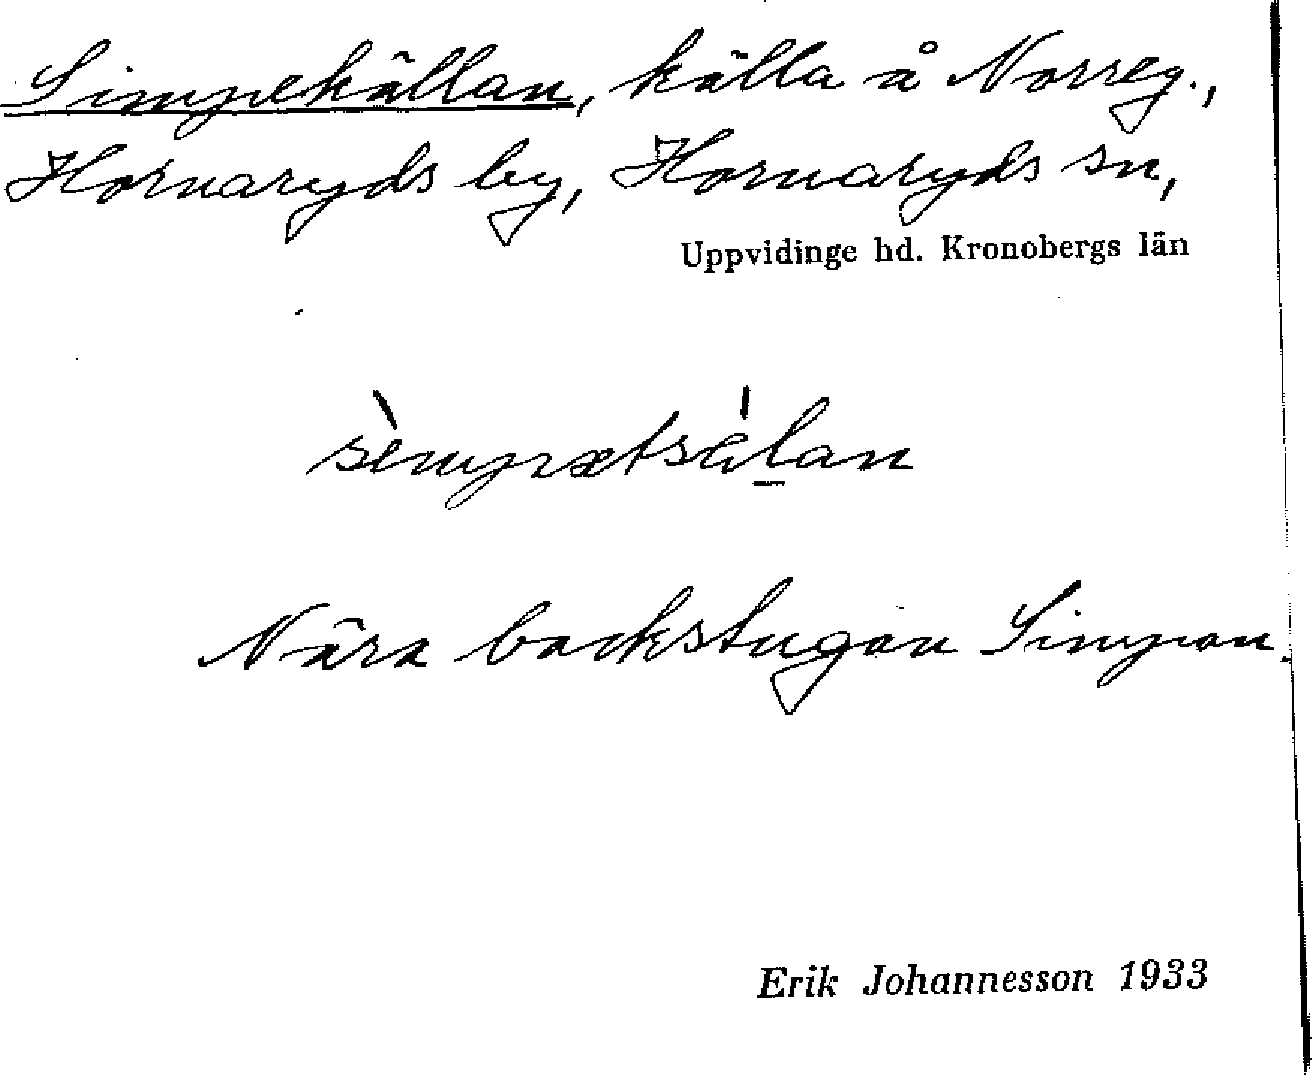 Simpekällan, källa å Norreg.,
Hornaryds by, Hornaryds sn,
Uppvidinge hd. Kronobergs län
sèmpætsálan
Nära backstugan Simpan.
Erik Johannesson 1933